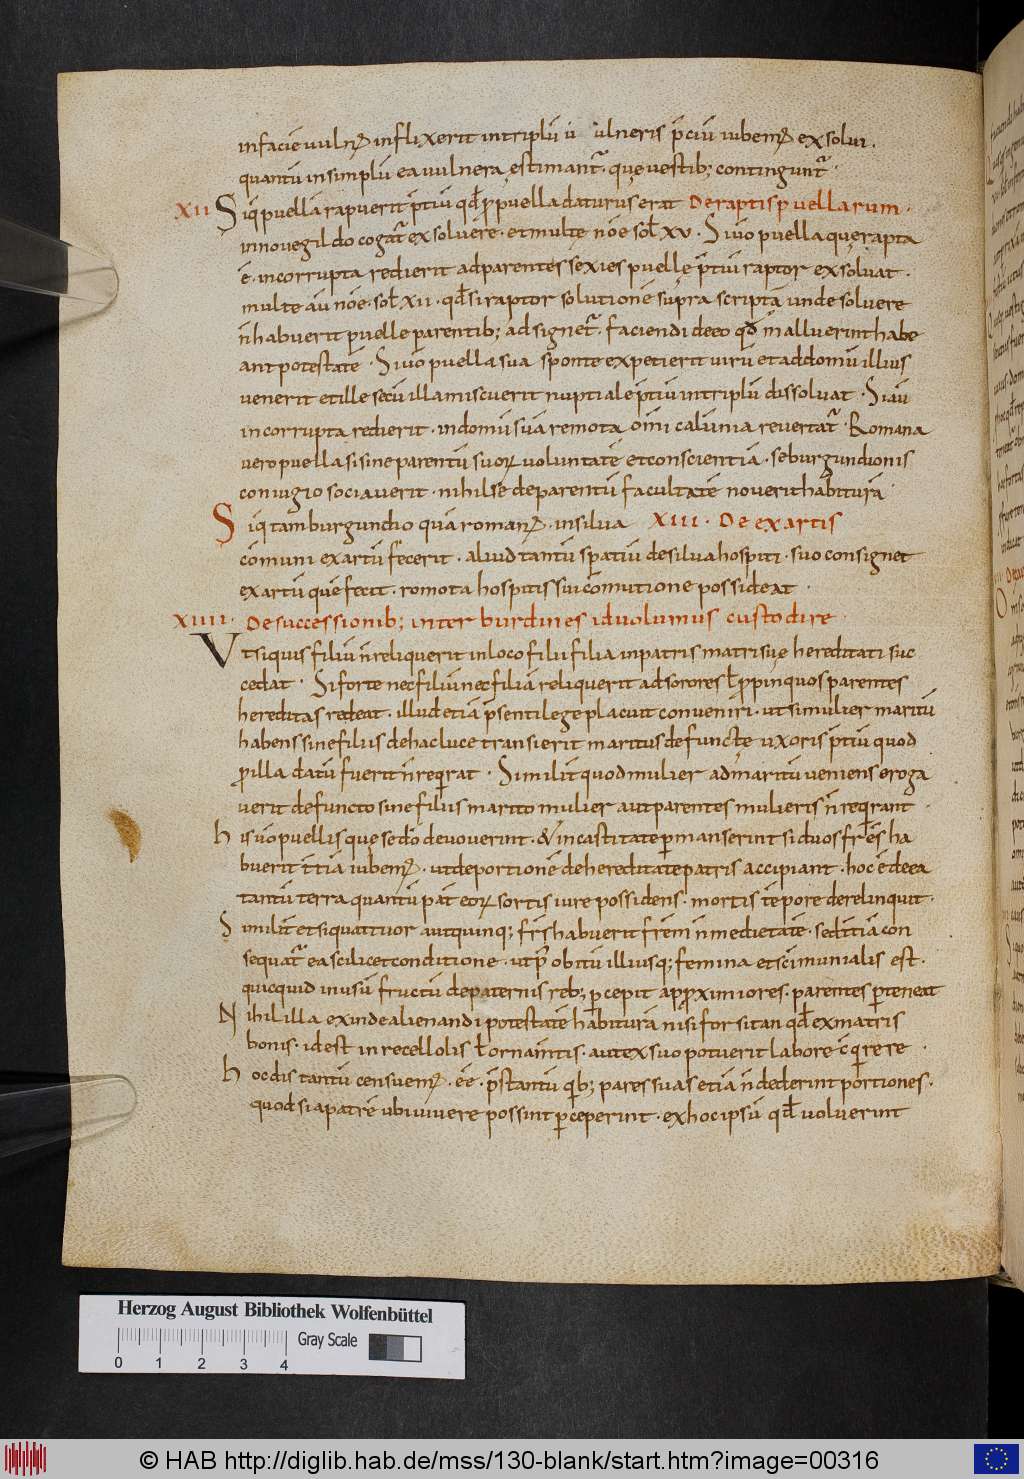 in facie uuln infli xerit intriplū u ulneris pciū iubem exsolui.
quantū insimplū ea uulnera ęstimant. quę uestib; contingunt
XII Siq puella rapuerit ptiū qd p puella daturus erat De raptis puellarum.
innouegildo cogat exsoluere. et multe nōe sol xv. Si uō puella quę rapta
ē. incorrupta redierit ad parentes sexies puellę ptiū raptor exsoluat.
multe aū nōe. sol xii. qd si raptor solutionē supra scriptā unde soluere
n habuerit puelle parentib; adsignet. faciendi de eo qd malluerint habe
ant potestatē. Si uō puella sua sponte expetierit uirū et ad domū illius
uenerit et ille secū illa miscuerit nuptiale ptiū intriplū dissoluat. Si aū
incorrupta redierit. in domū suā remota omi calūnia reuertat. Romana
uero puella si sine parentū suor uoluntatē et conscientiā. se burgundionis
coniugio sociauerit. nihil se de parentū facultatē nouerit habiturā
Siq tam burgundio quā roman. in silua XIII. De exartis
cōmuni exartū fecerit. aliud tantū spatiū de silua hospiti. suo consignet
exartū quē fecit. romota hospitis sui cōmutione possideat.
XIIII. De successionib; inter burdines id uolumus custodire.
Ut siquis filiū n reliquerit in loco filii filia in patris matris uę hereditati suc
cedat. Si forte nec filiū nec filiā reliquerit ad sorores l ppinquos parentes
hereditas redeat. illud etiā psenti lege placuit conueniri. ut si mulier maritū
habens sine filiis de hac luce transierit maritus defunctę uxoris ptiū quod
p illa datū fuerit n reqrat. Similit quod mulier ad maritū ueniens eroga
uerit defuncto sine filiis marito mulier aut parentes mulieris n reqrant.
his uō puellis quę se dō deuouerint. & in castitate pmanserint si duos frēs ha
buerit ttiā iubem. ut de portionē de hereditate patris accipiant. hoc ē de ea
tantū terra quantū pat eor sortis iure possidens. mortis tēpore derelinquit.
Similit et si quattuor aut quinq; frs habuerit frem n medietatē. sed ttiā con
sequat ea scilicet conditione. ut p obitū illiusq; femina et scimunialis est.
quicquid in usū fructū de paternis reb; pcepit appximiores. parentes pteneat
Nihil illa exinde alienandi potestatē habiturā nisi forsitan qd ex matris
bonis. id est in recellolis l ornamtis. aut ex suo potuerit labore cqrere re.
hoc dis tantū censuem. ēē. pstantū qb; pares suas etiā n dederint portiones.
quod si a patrē ubi uiuere possint pceperint. ex hoc ipsū qd uoluerint
Herzog August Bibliothek Wolfenbüttel
Gray Scale
0 1 2 3 4
© HAB http://diglib.hab.de/mss/130-blank/start.htm?image=00316